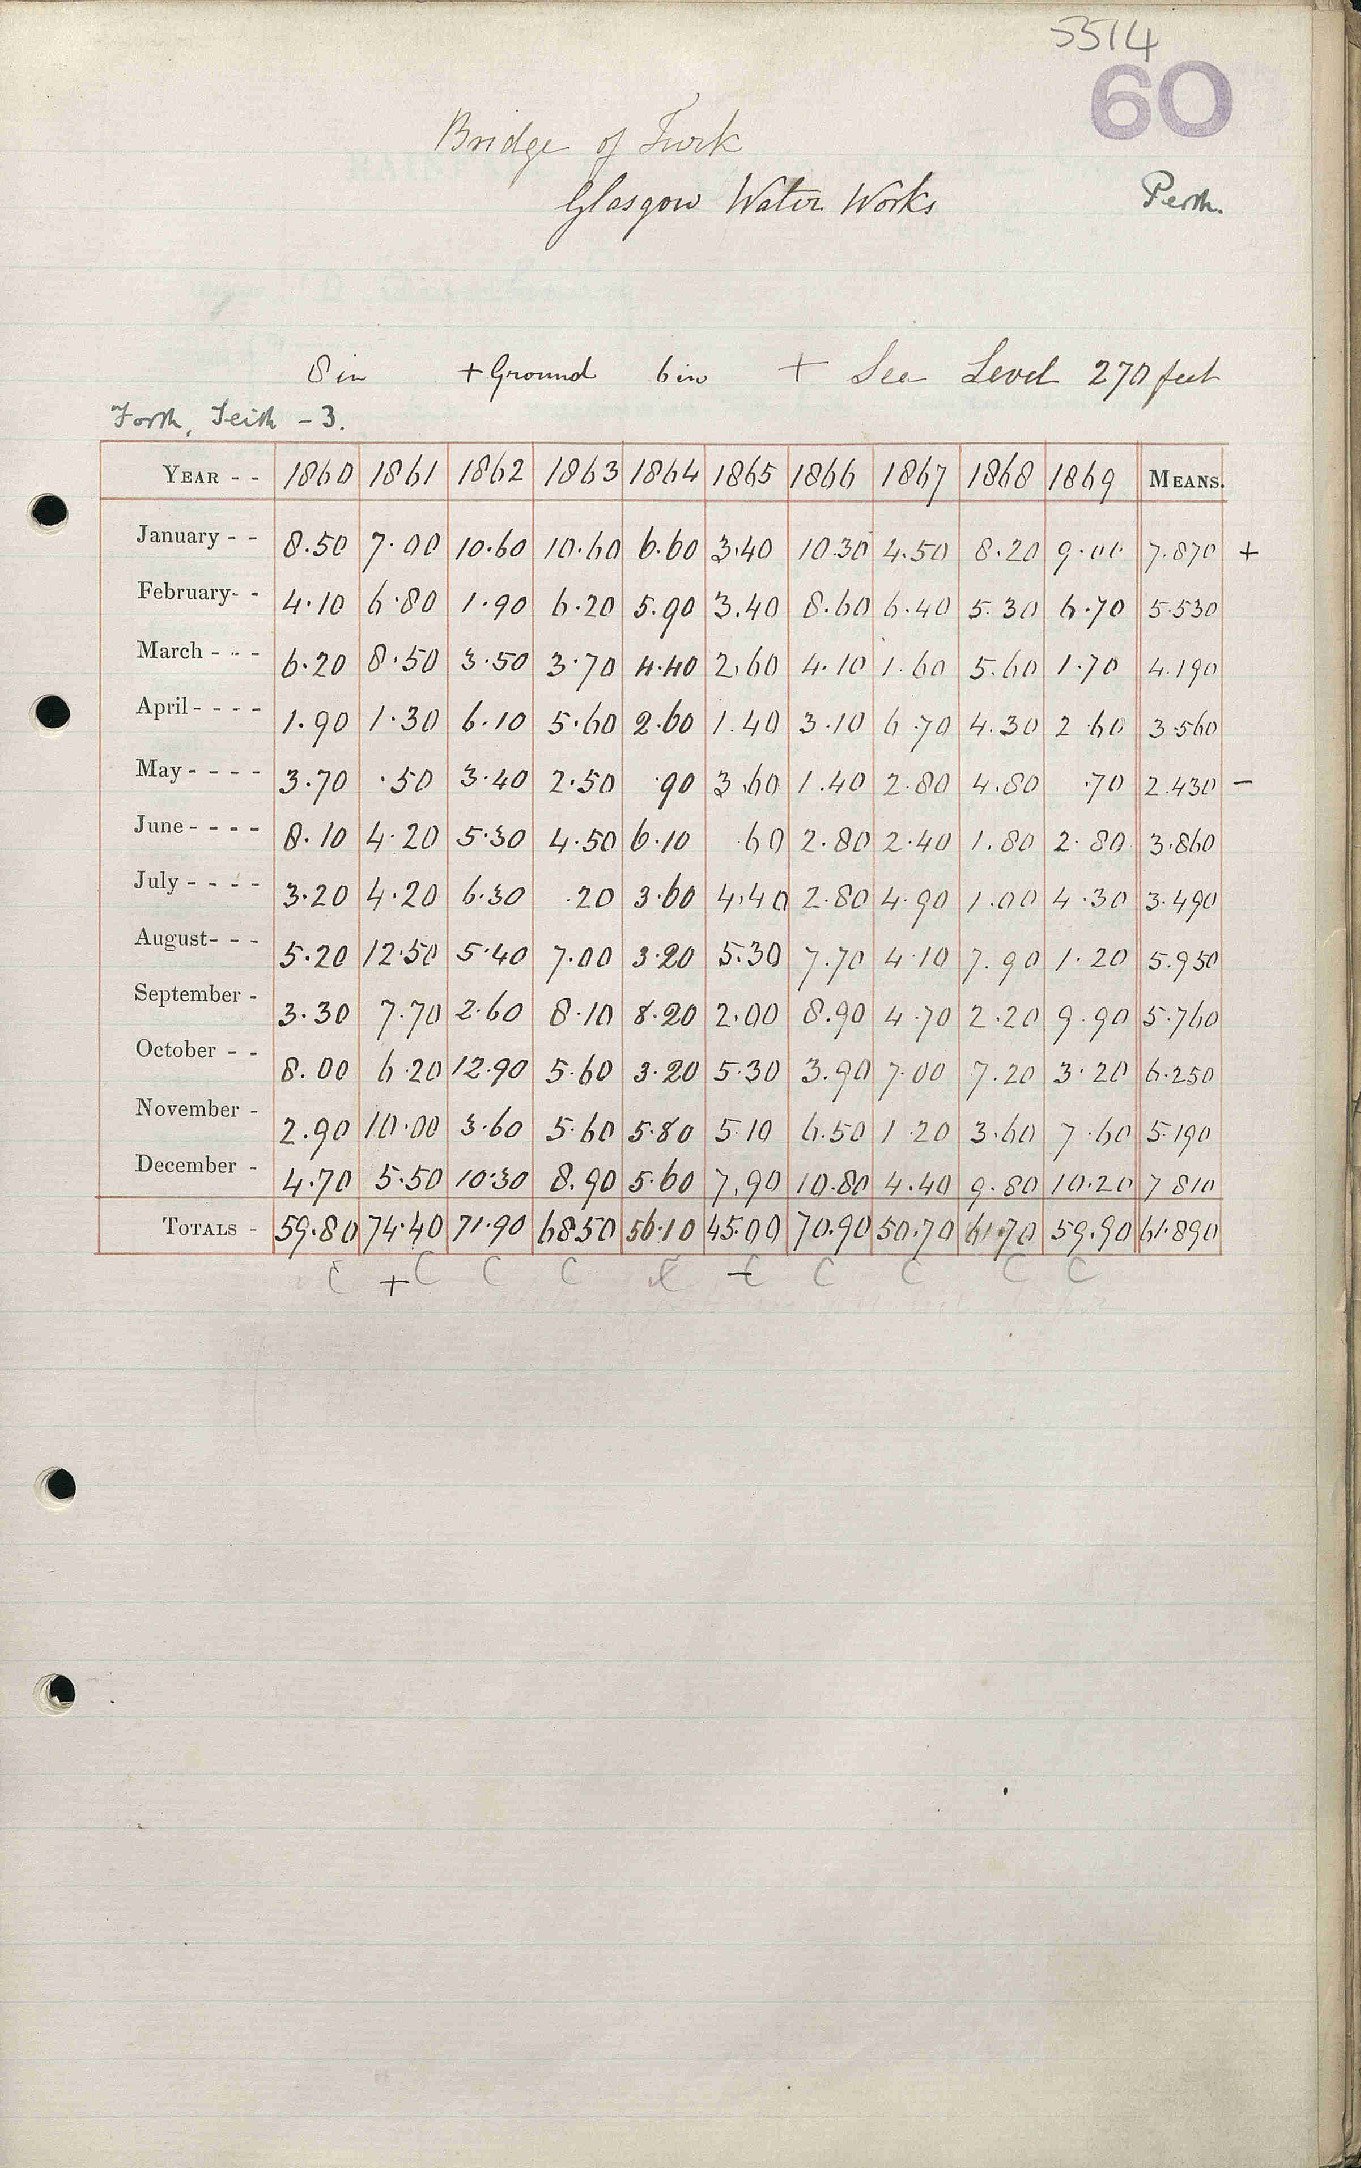 5514
60
Bridge of Turk
Glasgow Water Works
Perth.
8 in + Ground 6 in + Sea Level 270 feet
Forth, Teith - 3.
YEAR - - 1860 1861 1862 1863 1864 1865 1866 1867 1868 1869 MEANS.
January - - 8.50 7.00 10.60 10.60 6.60 3.40 10.30 4.50 8.20 9.00 7.870 +
February- - 4.10 6.80 1.90 6.20 5.90 3.40 8.60 6.40 5.30 6.70 5.530
March - - - 6.20 8.50 3.50 3.70 4.40 2.60 4.10 1.60 5.60 1.70 4.190
April - - - - 1.90 1.30 6.10 5.60 2.60 1.40 3.10 6.70 4.30 2.60 3.560
May - - - - 3.70 .50 3.40 2.50 .90 3.60 1.40 2.80 4.80 .70 2.430 -
June - - - - 8.10 4.20 5.30 4.50 6.10 .60 2.80 2.40 1.80 2.80 3.860
July - - - - 3.20 4.20 6.30 .20 3.60 4.40 2.80 4.90 1.00 4.30 3.490
August- - - 5.20 12.50 5.40 7.00 3.20 5.30 7.70 4.10 7.90 1.20 5.950
September - 3.30 7.70 2.60 8.10 8.20 2.00 8.90 4.70 2.20 9.90 5.760
October - - 8.00 6.20 12.90 5.60 3.20 5.30 3.90 7.00 7.20 3.20 6.250
November - 2.90 10.00 3.60 5.60 5.80 5.10 6.50 1.20 3.60 7.60 5.190
December - 4.70 5.50 10.30 8.90 5.60 7.90 10.80 4.40 9.80 10.20 7.810
TOTALS - 59.80 74.40 71.90 68.50 56.10 45.00 70.90 50.70 61.70 59.90 61.890
C + C C C C - C C C C C